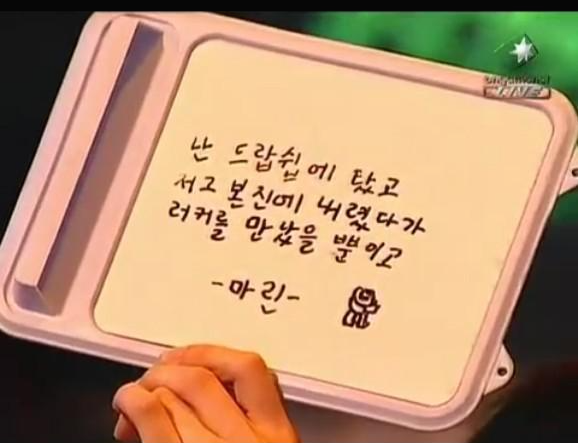 난 드랍쉽에 탔고
저그 본진에 내렸다가
러커를 만났을 뿐이고
-마린-